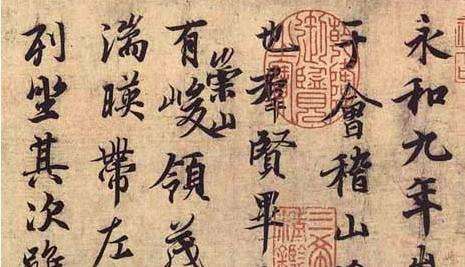 永和九年
于會稽山
也羣賢畢
有崇山峻領茂
湍暎帶左
列坐其次雖